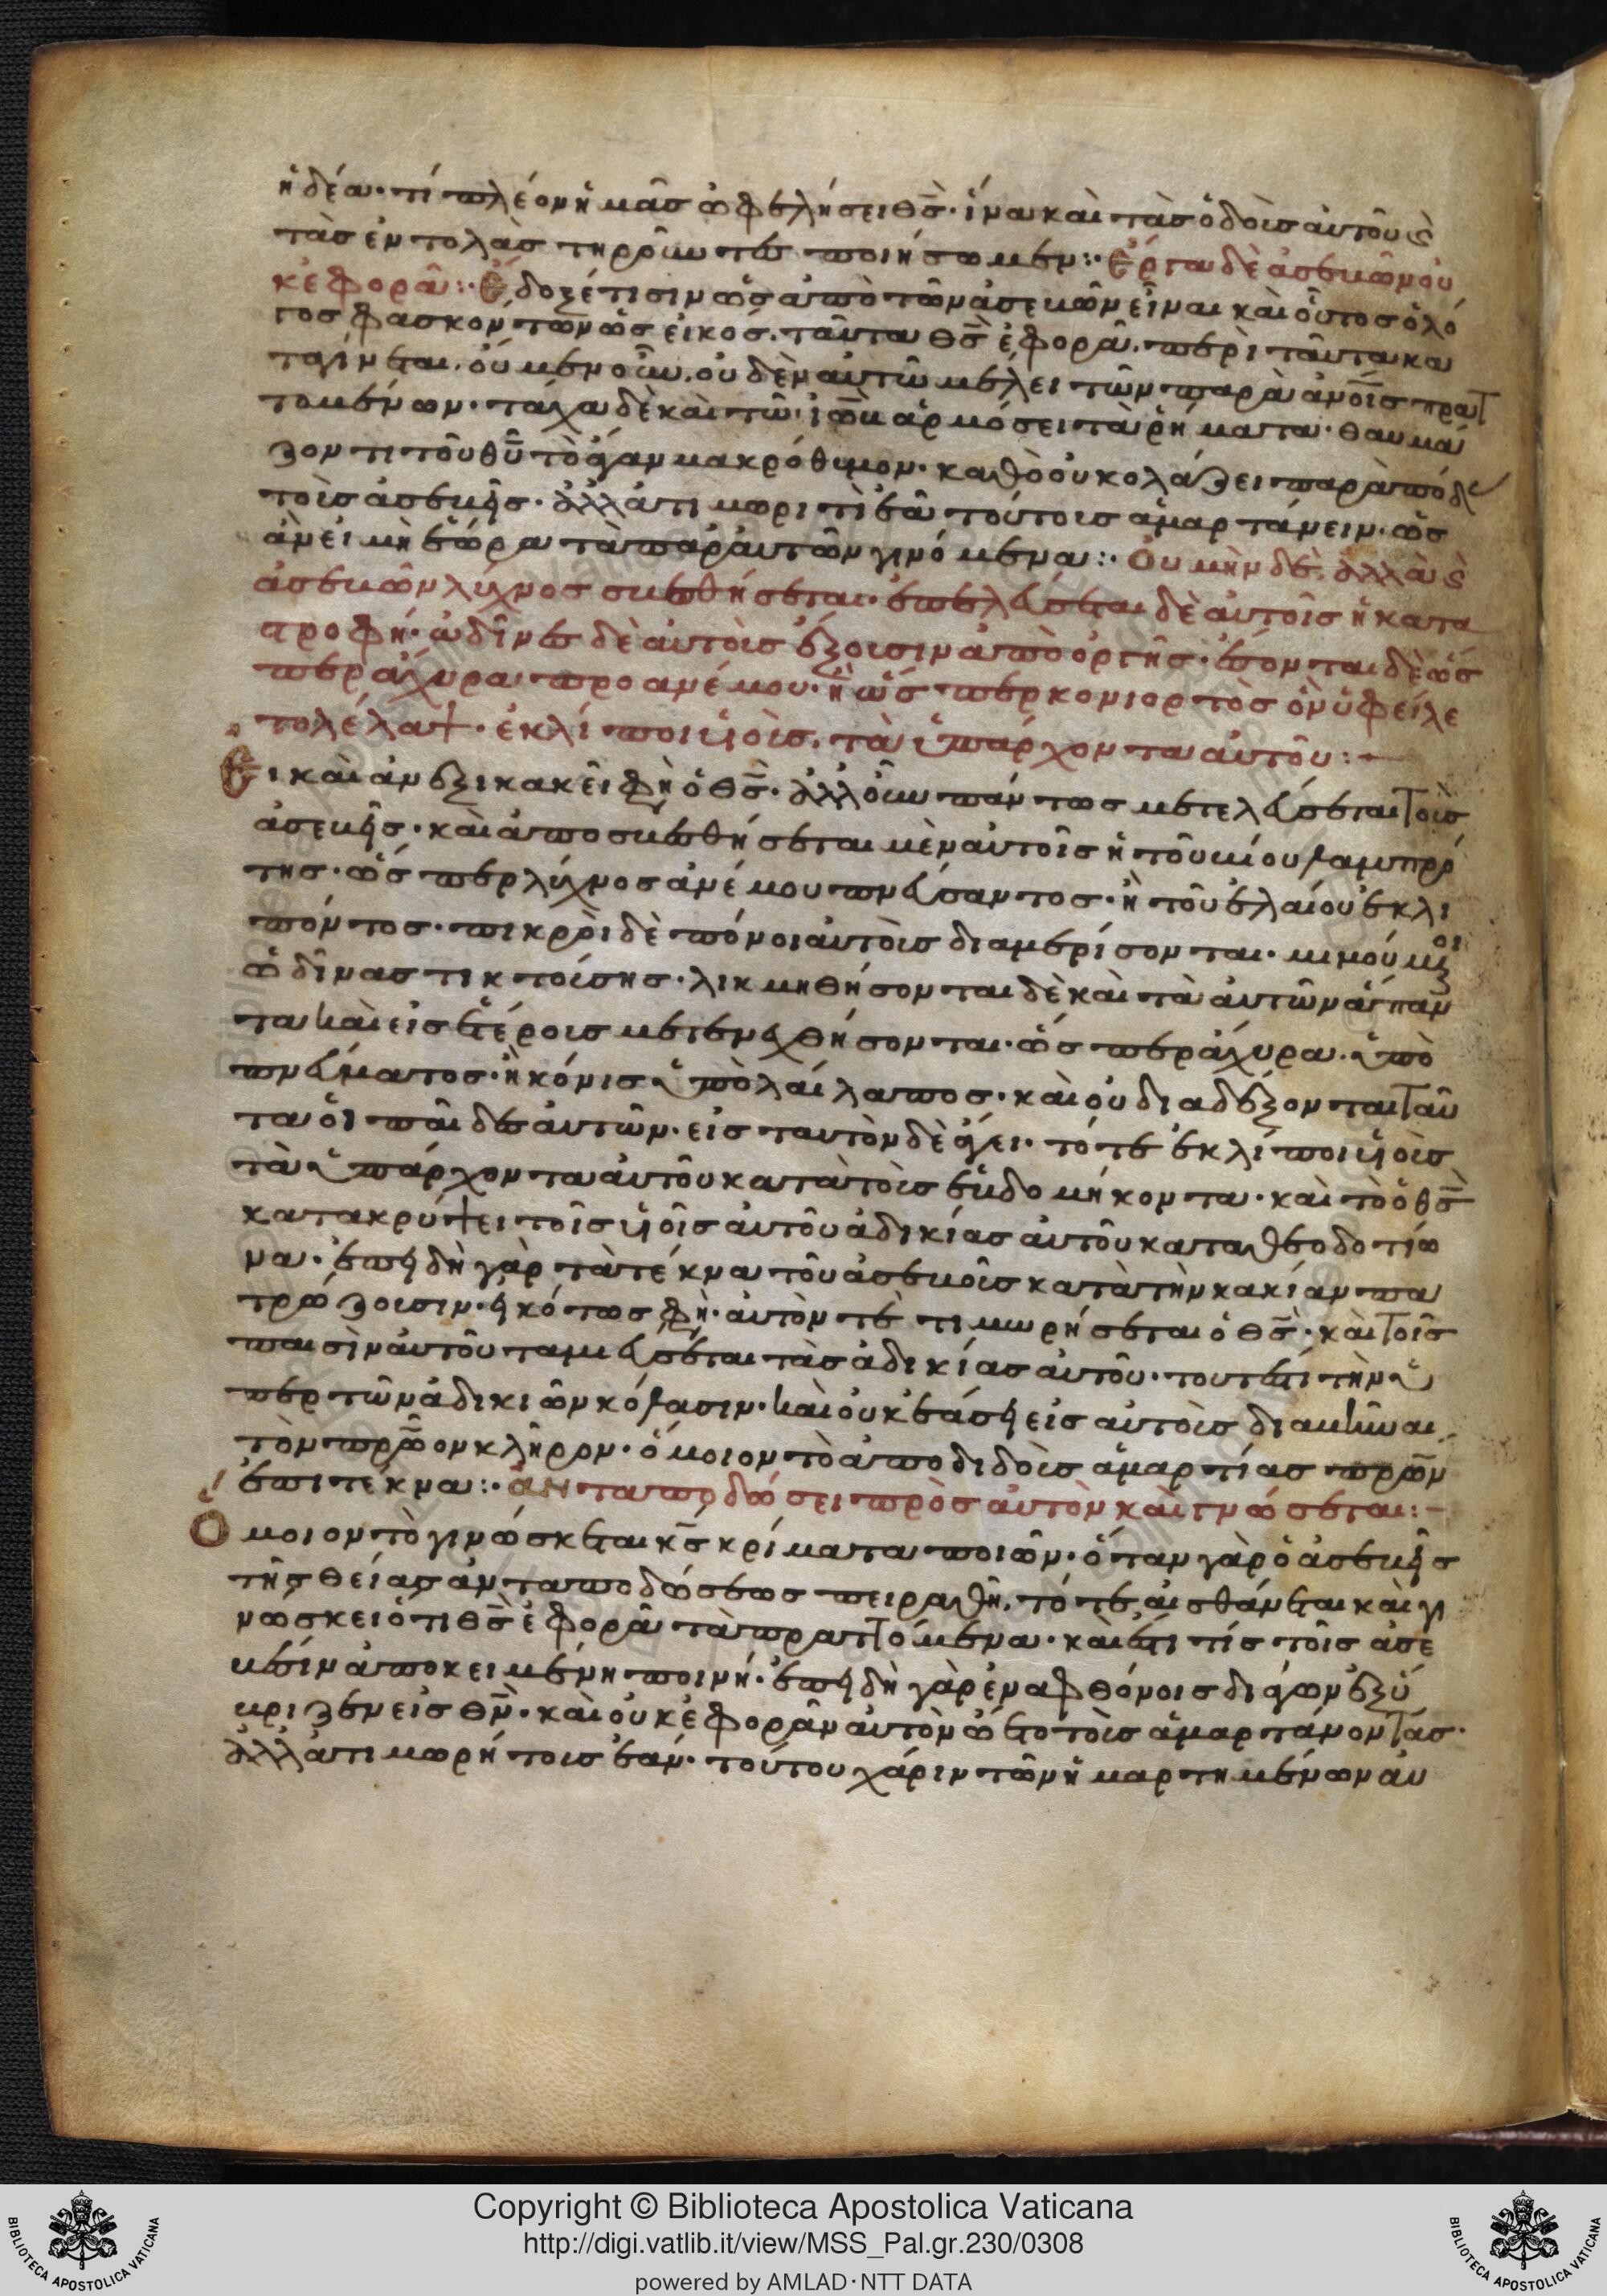 ἡδέα· τί πλέον ἡμᾶσ ὠφελήσει θ̅σ̅· ἵνα καὶ τὰσ ὁδοὺσ αὐτοῦ ϛ
τὰσ ἐντολὰσ τηροῦντεσ ποιήσωμεν:· ἔργα δὲ ἀσεβῶν οὐ
κ ἐφορᾶ:· ἔδοξέ τισιν ὡσ ἀπὸ τῶν ἀσεβῶν εἶναι καὶ οὗτοσ ὁ λό
γοσ φασκόντων ὡσ εἰκόσ. ταῦτα θ̅σ̅ ἐφορᾶ. περὶ ταῦτα κα
ταγίνεται. οὐμενοῦν. οὐδὲν αὐτῶ μέλει τῶν παρὰ ἀν̅ο̅ισ πρατ
τομένων· τάχα δὲ καὶ τῶ ἰὼβ ἁρμόσει τὰ ῥήματα· θαυμά
ζοντι τοῦ θ̅υ̅ τὸ ἄγαν μακρόθυμον· καθὸ οὐ κολάζει παρὰ πόδ
τοὺσ ἀσεβεῖσ· ἀλλ' ἀτιμωριτὶ ἐᾶ τούτουσ ἁμαρτάνειν· ὡσ
ἂν εἰ μὴ ἑώρα τὰ παρ' αὐτῶν γινόμενα:· Οὐ μὴν δὲ ἀλλὰ ϛ
ἀσεβῶν λύχνοσ σβεσθήσεται· ἐπελεύσεται δὲ αὐτοῖσ ἡ κατα
στροφή· ὠδῖνεσ δὲ αὐτοὺσ ἕξουσιν ἀπὸ ὀργῆσ· ἔσονται δὲ ὡσ
περ ἄχυρα πρὸ ἀνέμου· ἢ ὥσπερ κονιορτὸσ ὃν ὑφείλε
το λέλαψ· ἐκλίποι υἱοὺσ. τὰ ὑπάρχοντα αὐτοῦ:·
Εἰ καὶ ἀνεξικακεῖ φη ὁ θ̅σ̅· ἀλλ' οὖν πάντωσ μετελεύσεται τοὺσ
ἀσεβεῖσ· καὶ ἀποσβεσθήσεται μὲν αὐτοῖσ ἡ τοῦ βίου λαμπρό
τησ· ὥσπερ λύχνοσ ἀνέμου πνεύσαντοσ· ἢ τοῦ ἐλαίου ἐκλι
πόντοσ· πικροὶ δὲ πόνοι αὐτοὺσ διαμερίσονται·
ὠδῖνασ τικτούσησ· λικμηθήσονται δὲ καὶ τὰ αὐτῶν ἅπαν
τα καὶ εἰσ ἑτέρουσ μετενεχθήσονται· ὥσπερ ἄχυρα. ὑπὸ
πνεύματοσ· ἢ κόνισ ὑπὸ λαίλαποσ· καὶ οὐ διαδέξονται ταῦ
τα οἱ παῖδεσ αὐτῶν· εἰσ ταυτὸν δὲ ἄγει· τό τε ἐκλίποι υἱοὺσ
τὰ ὑπάρχοντα αὐτοῦ κατὰ τοὺσ ἑβδομήκοντα· καὶ τὸ ὁ θ̅σ̅
κατακρύψει τοῖσ υἱοῖσ αὐτοῦ ἀδικίασ αὐτοῦ κατὰ θεοδοτίω
να· ἐπειδὴ γὰρ τὰ τέκνα τοῦ ἀσεβοῦσ κατὰ τὴν κακίαν πα
τρώζουσιν· εἰκότωσ φη· αὐτόν τε τιμωρήσεται ὁ θ̅σ̅· καὶ τοῖσ
παισὶν αὐτοῦ ταμιεύσεται τὰσ ἀδικίασ αὐτοῦ· τουτέστι τὴν ὑ
πὲρ τῶν ἀδικιῶν κόλασιν· καὶ οὐκ ἐάσει εἰσ αὐτοὺσ διαβῆναι
τὸν πρ̅ῶ̅ον κλῆρον· ὅμοιον τὸ ἀποδιδοὺσ ἁμαρτίασ πρ̅ω̅ν
ἐπι τεκνα:· ἀνταποδώσει πρὸσ αὐτὸν καὶ γνώσεται:·
Ὅμοιον τὸ γινώσκεται κ̅σ̅ κρίματα ποιῶν· ὅταν γὰρ ὁ ἀσεβὴσ
τῆσ θείασ ἀνταποδόσεωσ πειραθῆ. τότε αἰσθάνεται καὶ γι
νώσκει ὅτι θ̅σ̅ ἐφορᾶ τὰ πραττόμενα· καὶ ἔστι τίσ τοῖσ ἀσε
βέσιν ἀποκειμένη ποινή· ἐπειδὴ γὰρ ἐν ἀφθόνοισ διάγων ἐξύ
βριζεν εἰσ θ̅ν̅· καὶ οὐκ ἐφορᾶν αὐτὸν ὤετο τοὺσ ἁμαρτάνοντασ·
ἀλλ' ἀτιμωρήτουσ ἐᾶν· τούτου χάριν τῶν ἡμαρτημένων αὐ
Copyright © Biblioteca Apostolica Vaticana
http://digi.vatlib.it/view/MSS_Pal.gr.230/0308
powered by AMLAD·NTT DATA
BIBLIOTECA APOSTOLICA VATICANA
BIBLIOTECA APOSTOLICA VATICANA